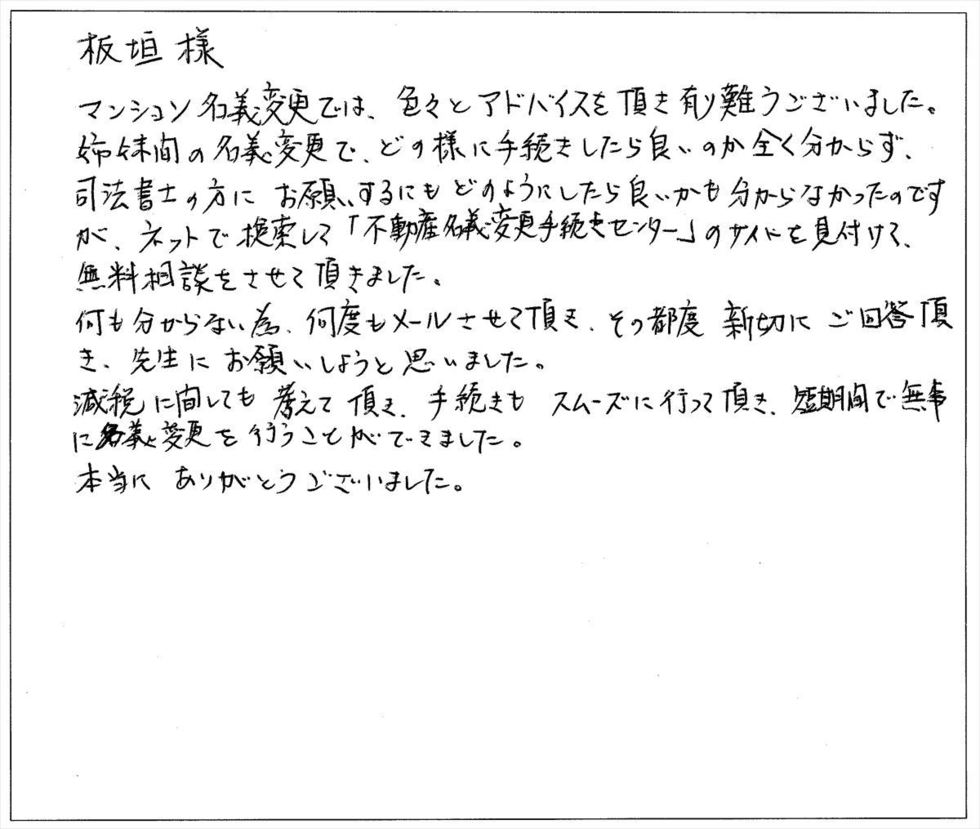 板垣様
マンション名義変更では、色々とアドバイスを頂き有り難うございました。
姉妹間の名義変更で、どの様に手続きしたら良いのか全く分からず、
司法書士の方に お願いするにもどのようにしたら良いかも分からなかったのです
が、ネットで検索して「不動産名義変更手続きセンター」のサイトを見付けて、
無料相談をさせて頂きました。
何も分からない為、何度もメールさせて頂き、その都度 新切に ご回答頂
き、先生に お願いしようと思いました。
減税に間しても 考えて頂き、手続きも スムーズに行って頂き、短期間で無事
に名義変更を行うことができました。
本当に ありがとうございました。